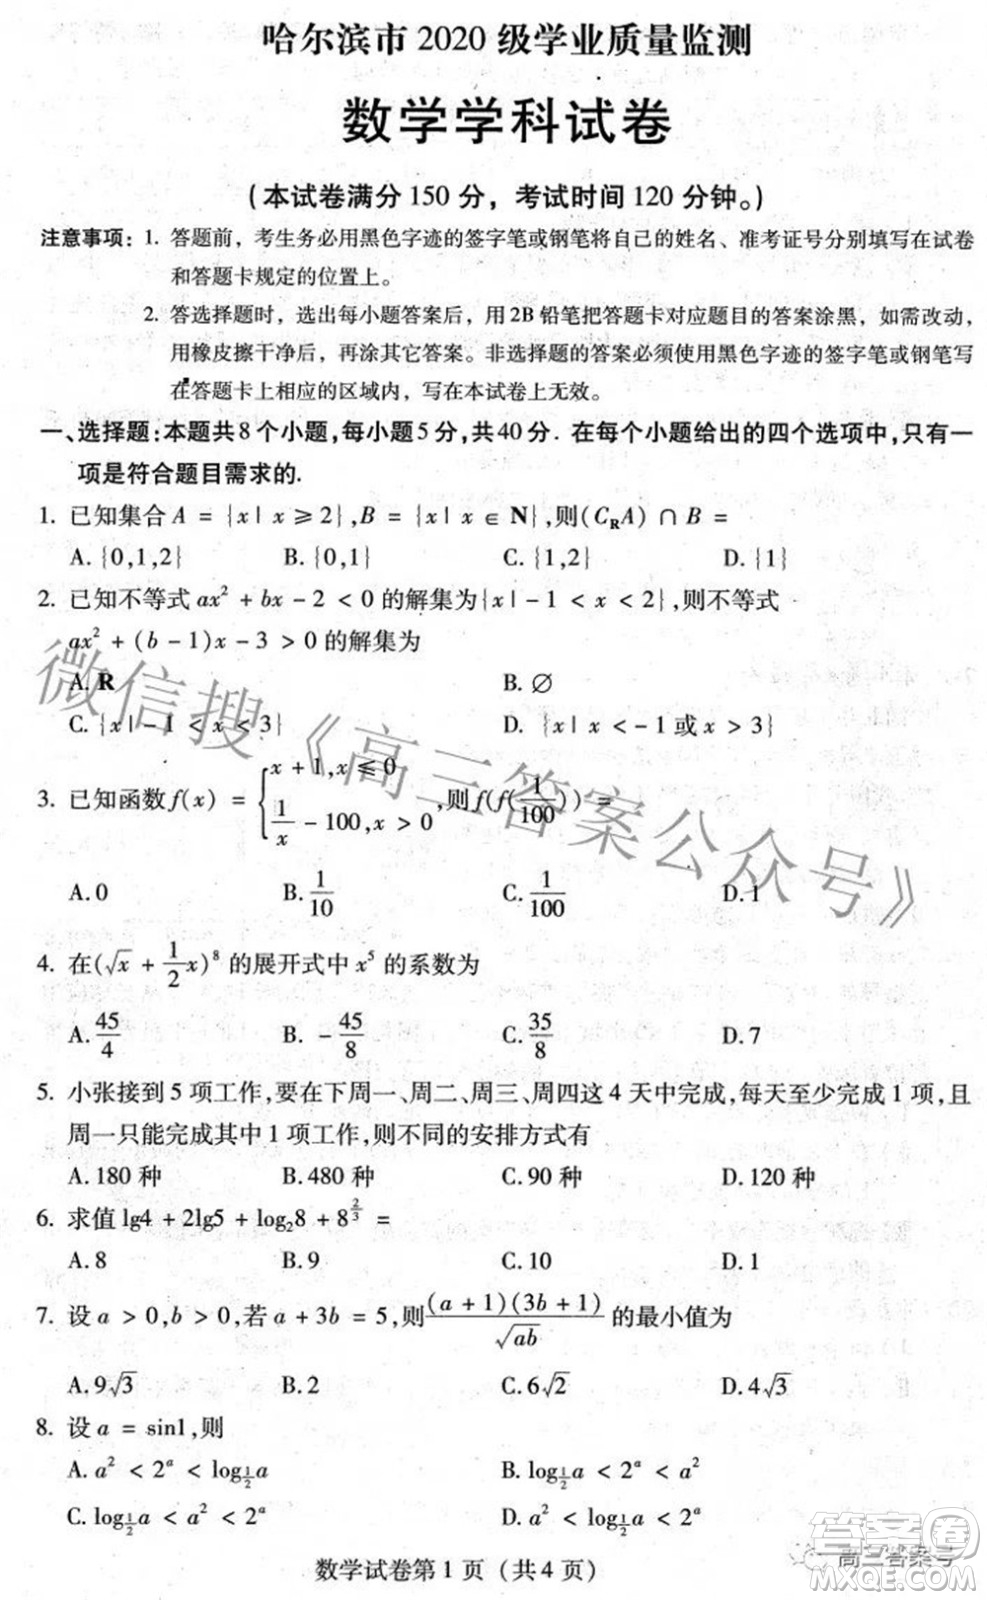 哈尔滨市 2020 级学业质量监测
数学学科试卷
(本试卷满分 150 分，考试时间 120 分钟。)
注意事项：1. 答题前，考生务必用黑色字迹的签字笔或钢笔将自己的姓名、准考证号分别填写在试卷
和答题卡规定的位置上。
2. 答选择题时，选出每小题答案后，用 2B 铅笔把答题卡对应题目的答案涂黑，如需改动，
用橡皮擦干净后，再涂其它答案。非选择题的答案必须使用黑色字迹的签字笔或钢笔写
在答题卡上相应的区域内，写在本试卷上无效。
一、选择题：本题共 8 个小题，每小题 5 分，共 40 分．在每个小题给出的四个选项中，只有一
项是符合题目需求的.
1. 已知集合 A = {x | x ≥ 2}, B = {x | x ∈ N}, 则(C_R A) ∩ B =
A. {0,1,2} B. {0,1} C. {1,2} D. {1}
2. 已知不等式 ax² + bx - 2 < 0 的解集为{x | -1 < x < 2}, 则不等式
ax² + (b - 1)x - 3 > 0 的解集为
A. R B. ∅
C. {x | -1 < x < 3} D. {x | x < -1 或 x > 3}
3. 已知函数 f(x) = { x + 1, x ≤ 0; 1/x - 100, x > 0 , 则 f(f(1/100)) =
A. 0 B. 1/10 C. 1/100 D. 1
4. 在(√x + 1/2 x)⁸ 的展开式中 x⁵ 的系数为
A. 45/4 B. - 45/8 C. 35/8 D. 7
5. 小张接到 5 项工作，要在下周一、周二、周三、周四这 4 天中完成，每天至少完成 1 项，且
周一只能完成其中 1 项工作，则不同的安排方式有
A. 180 种 B. 480 种 C. 90 种 D. 120 种
6. 求值 lg4 + 2lg5 + log₂8 + 8^(2/3) =
A. 8 B. 9 C. 10 D. 1
7. 设 a > 0, b > 0, 若 a + 3b = 5, 则 (a + 1)(3b + 1)/√ab 的最小值为
A. 9√3 B. 2 C. 6√2 D. 4√3
8. 设 a = sin1, 则
A. a² < 2^a < log_(1/2) a B. log_(1/2) a < 2^a < a²
C. log_(1/2) a < a² < 2^a D. a² < log_(1/2) a < 2^a
数学试卷第 1 页（共 4 页）
微信搜《高三答案公众号》
高三答案号
答案圈
MXQE.COM